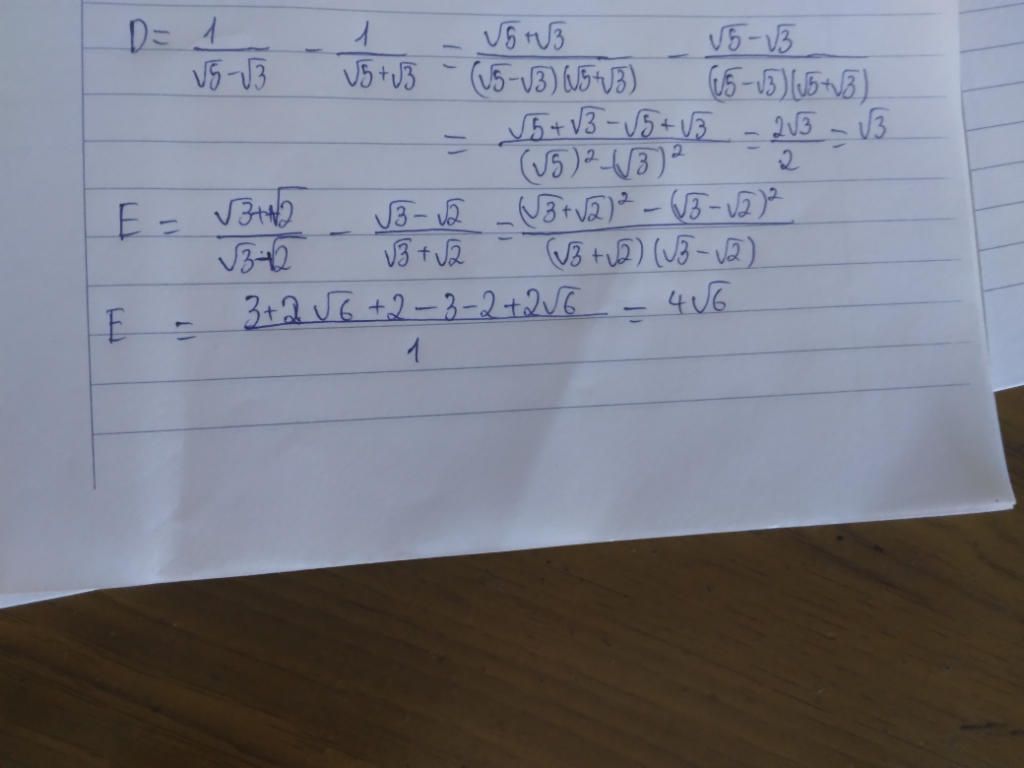 D = 1/(√5-√3) - 1/(√5+√3) = (√5+√3)/((√5-√3)(√5+√3)) - (√5-√3)/((√5-√3)(√5+√3))
= (√5+√3-√5+√3)/((√5)²-(√3)²) = 2√3/2 = √3
E = (√3+√2)/(√3-√2) - (√3-√2)/(√3+√2) = ((√3+√2)²-(√3-√2)²)/((√3+√2)(√3-√2))
E = (3+2√6+2-3-2+2√6)/1 = 4√6